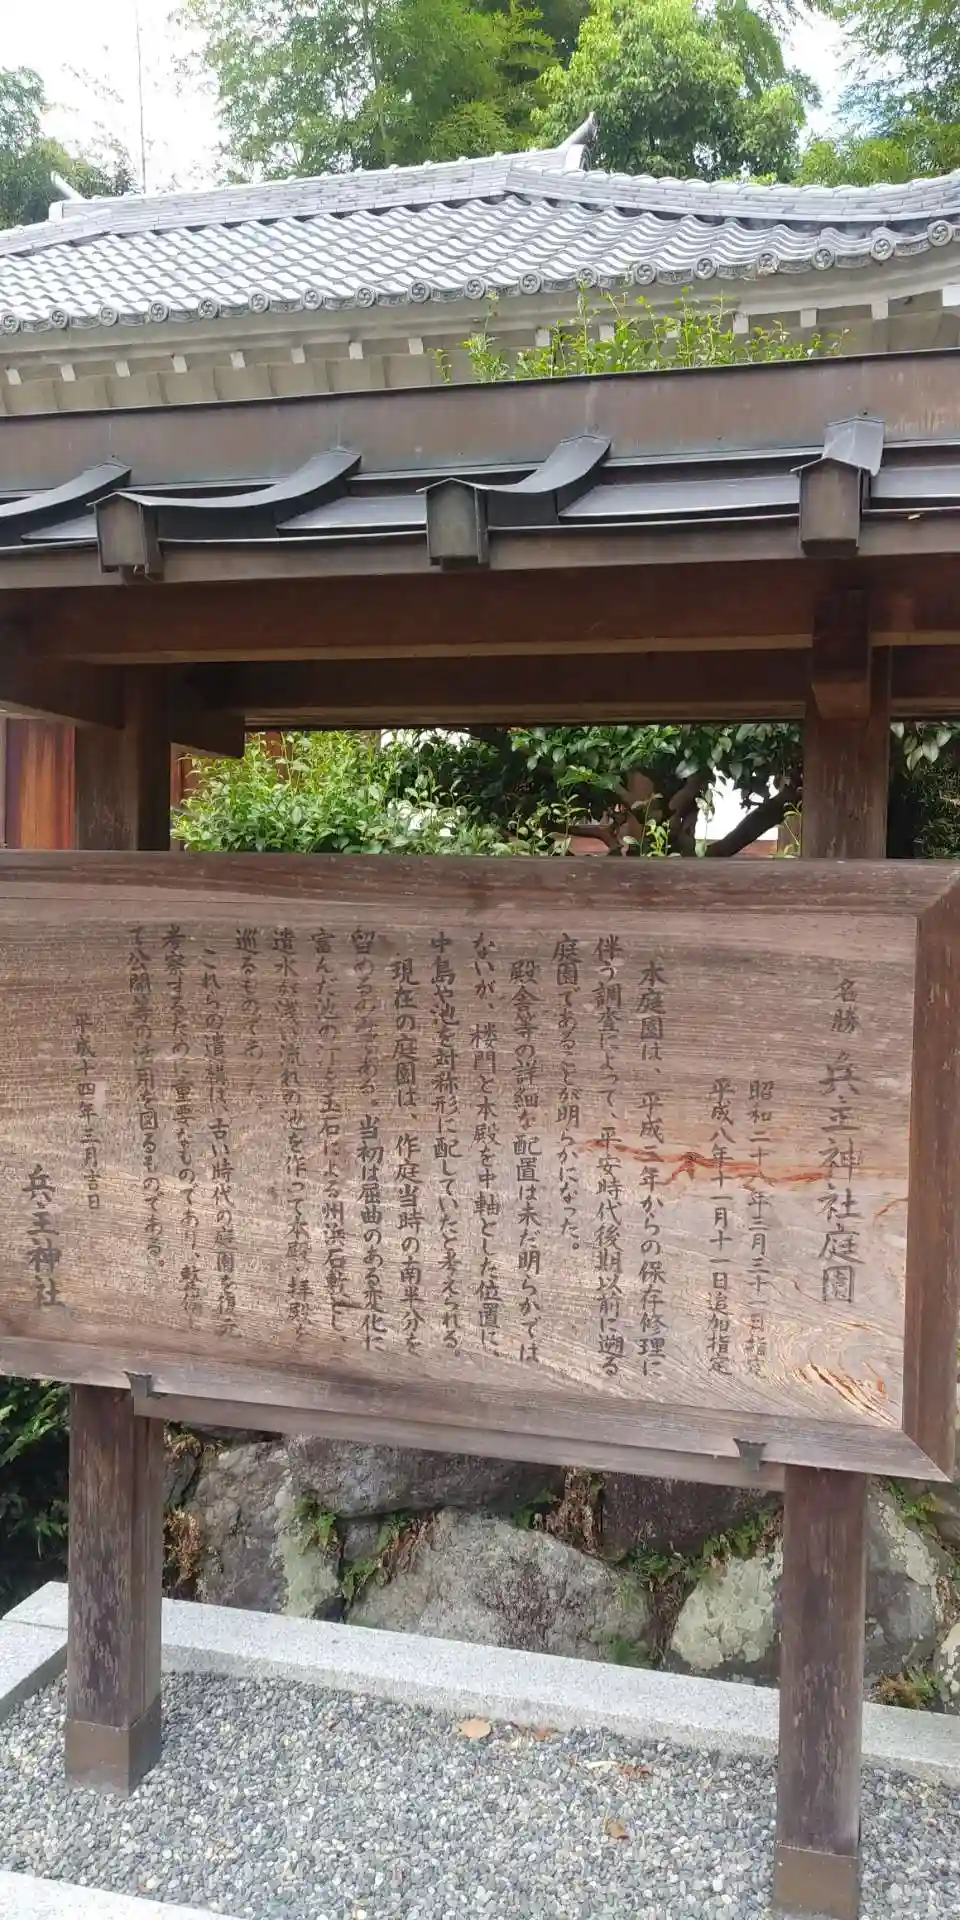 名勝 兵主神社庭園
昭和二十八年三月三十一日指定
平成八年十一月十一日追加指定
本庭園は、平成三年からの保存修理に
伴う調査によって、平安時代後期以前に遡る
庭園であることが明らかになった。
殿舎等の詳細な配置は未だ明らかでは
ないが、楼門と本殿を中軸とした位置に、
中島や池を対称形に配していたと考えられる。
現在の庭園は、作庭当時の南半分を
留めるのみである。当初は屈曲のある変化に
富んだ池の汀と玉石による州浜石敷とし、
遣水が浅い流れの池を作って本殿、拝殿を
巡るものであった。
これらの遺構は、古い時代の庭園を復元
考察するために重要なものであり、整備し
て公開等の活用を図るものである。
平成十四年三月吉日
兵主神社